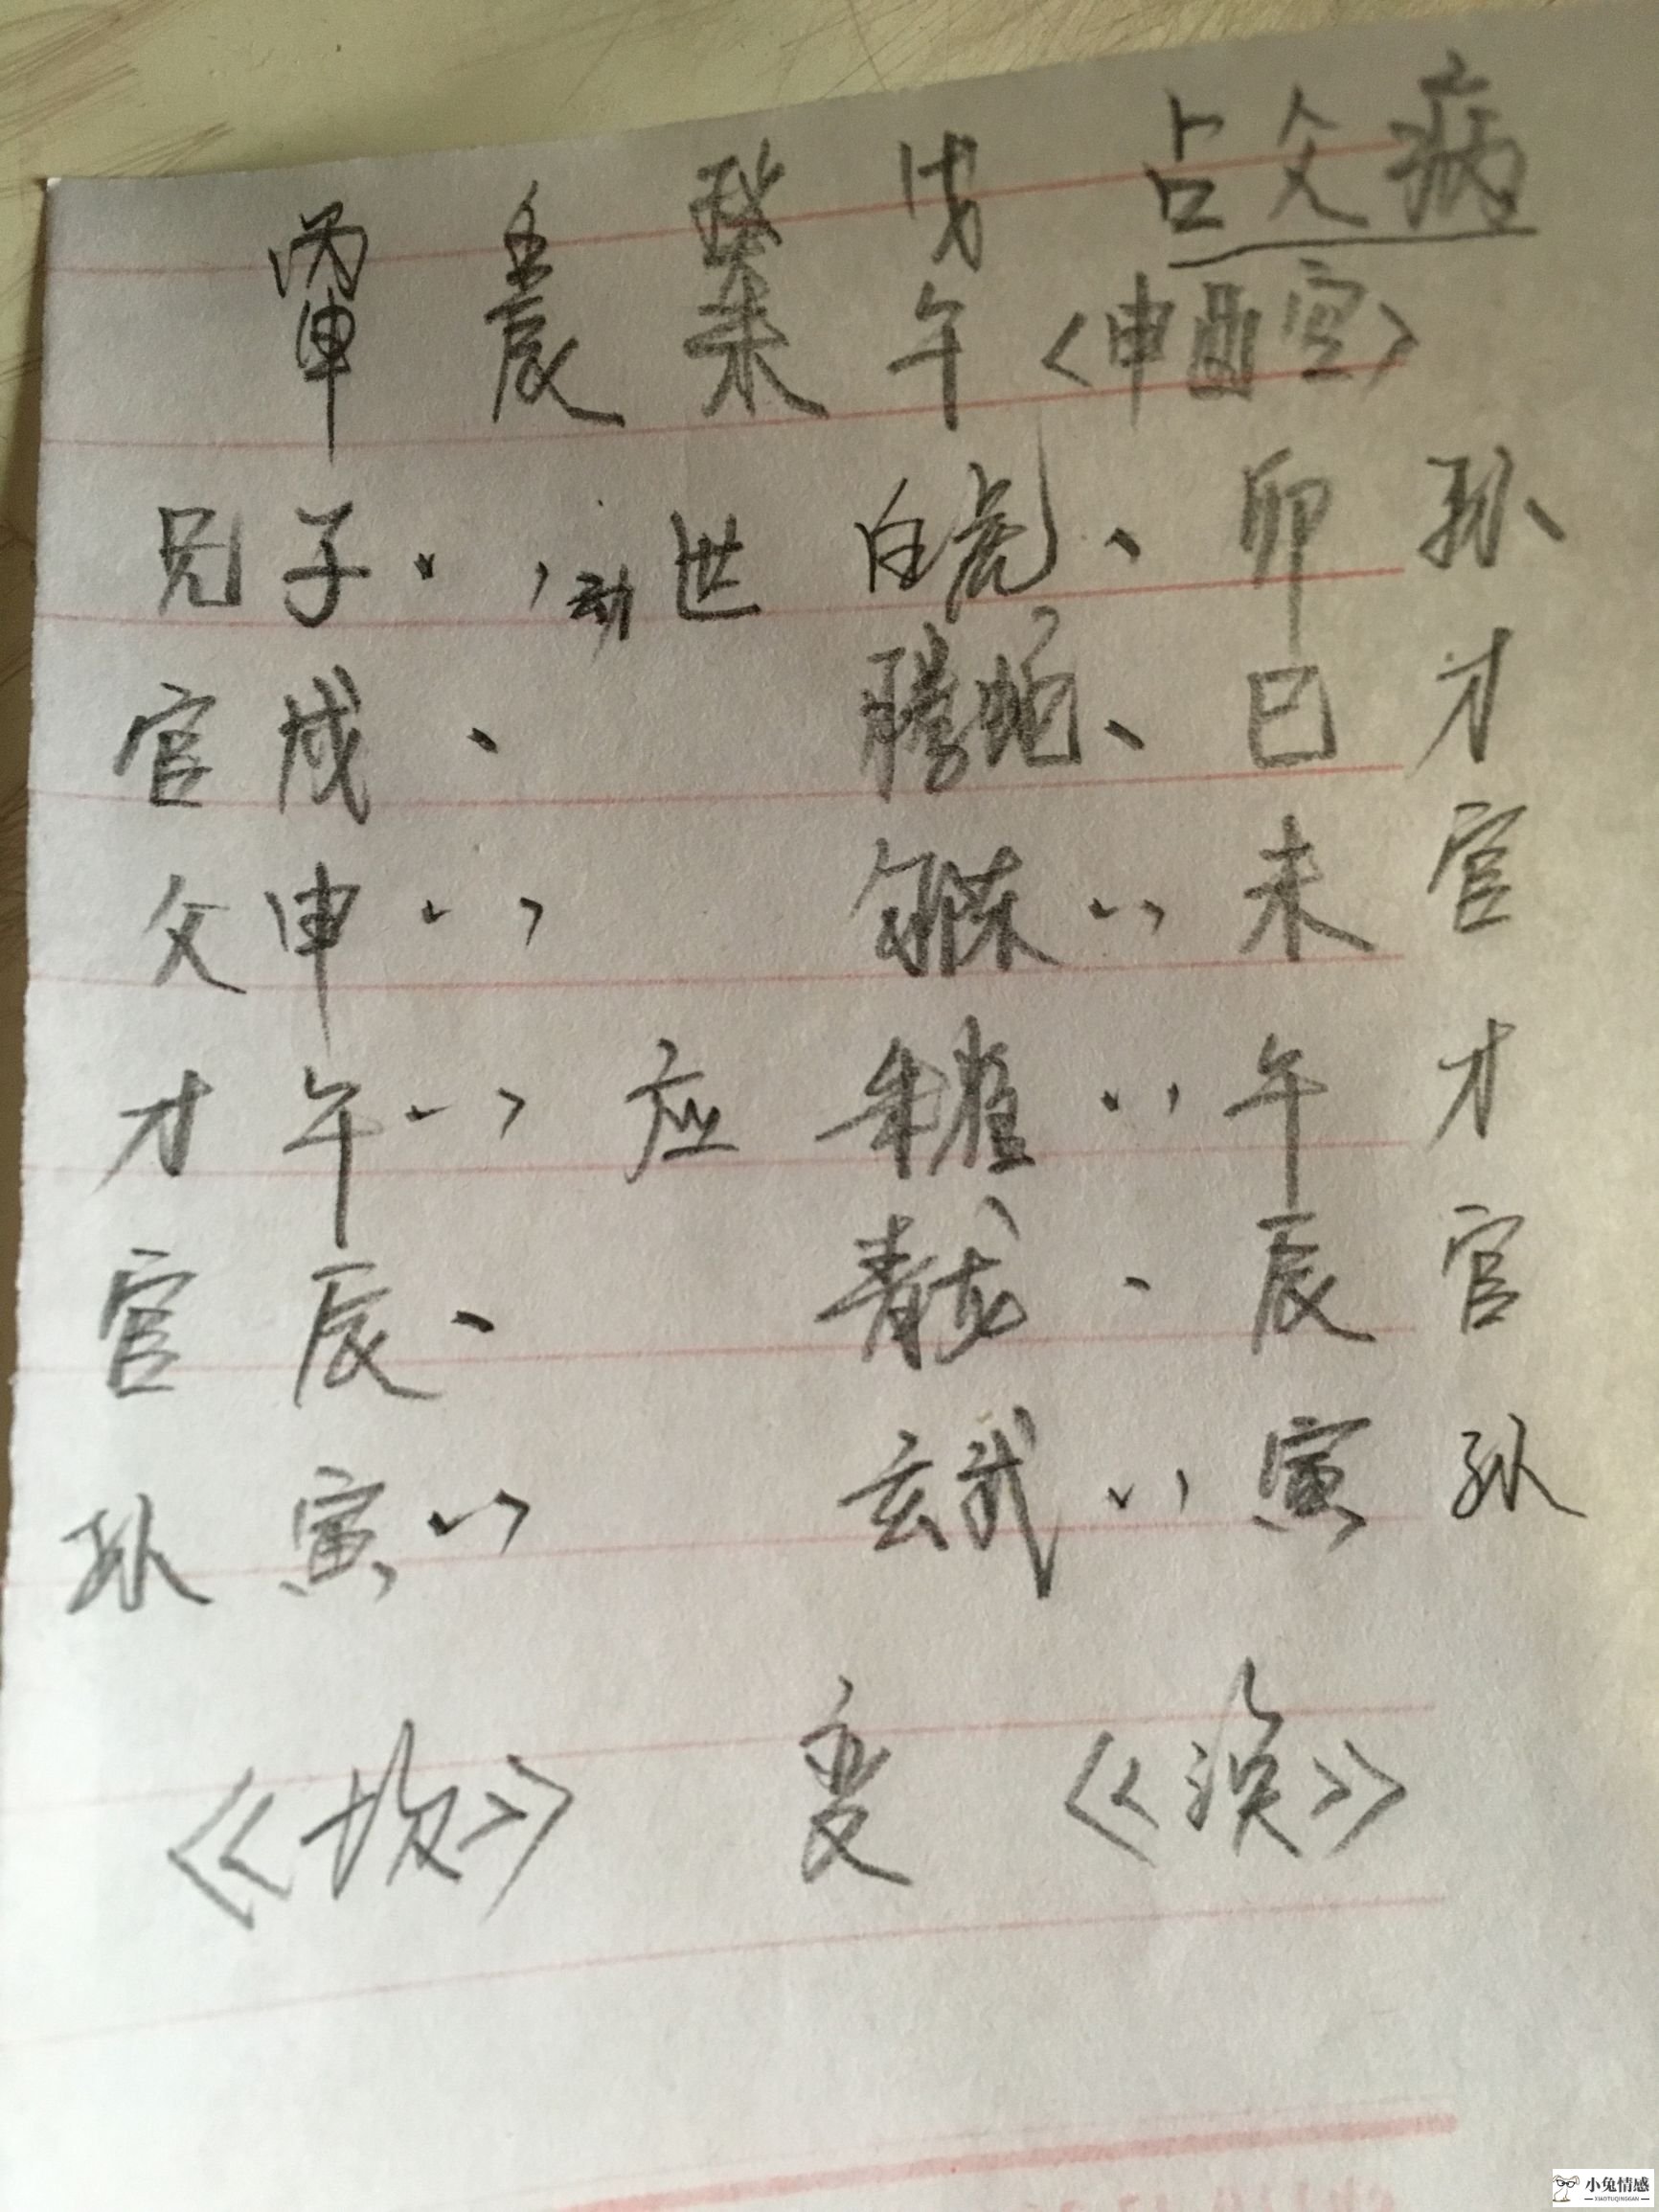 丙 壬 癸 戊 占父病
申 辰 未 午 <申酉空>
兄 子 、、动 世 白虎 、 卯 孙
官 戌 、 腾蛇 、 巳 才
父 申 、、 勾陈 、、 未 官
才 午 、、 应 朱雀 、、 午 才
官 辰 、 青龙 、 辰 官
孙 寅 、、 玄武 、、 寅 孙
《坎》 变 《涣》
小兔情感
XIAOTUQINGGAN